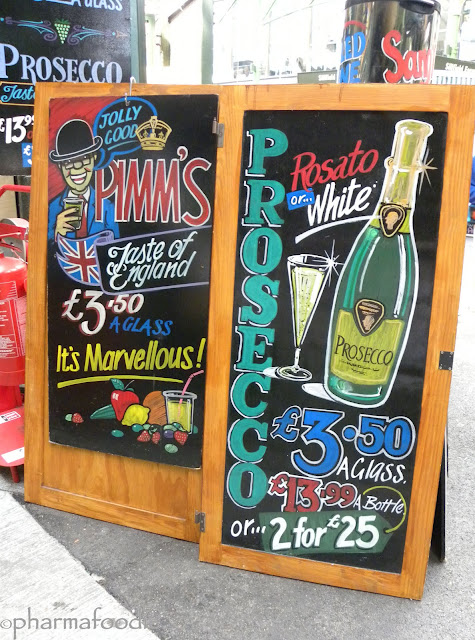 A GLASS
PROSECCO
Taste
£13.99
JOLLY GOOD
PIMM'S
Taste of
England
£3.50
A GLASS
It's Marvellous!
PROSECCO
Rosato
or...
White
PROSECCO
£3.50
A GLASS.
£13.99 A Bottle
or... 2 for £25
©pharmafood